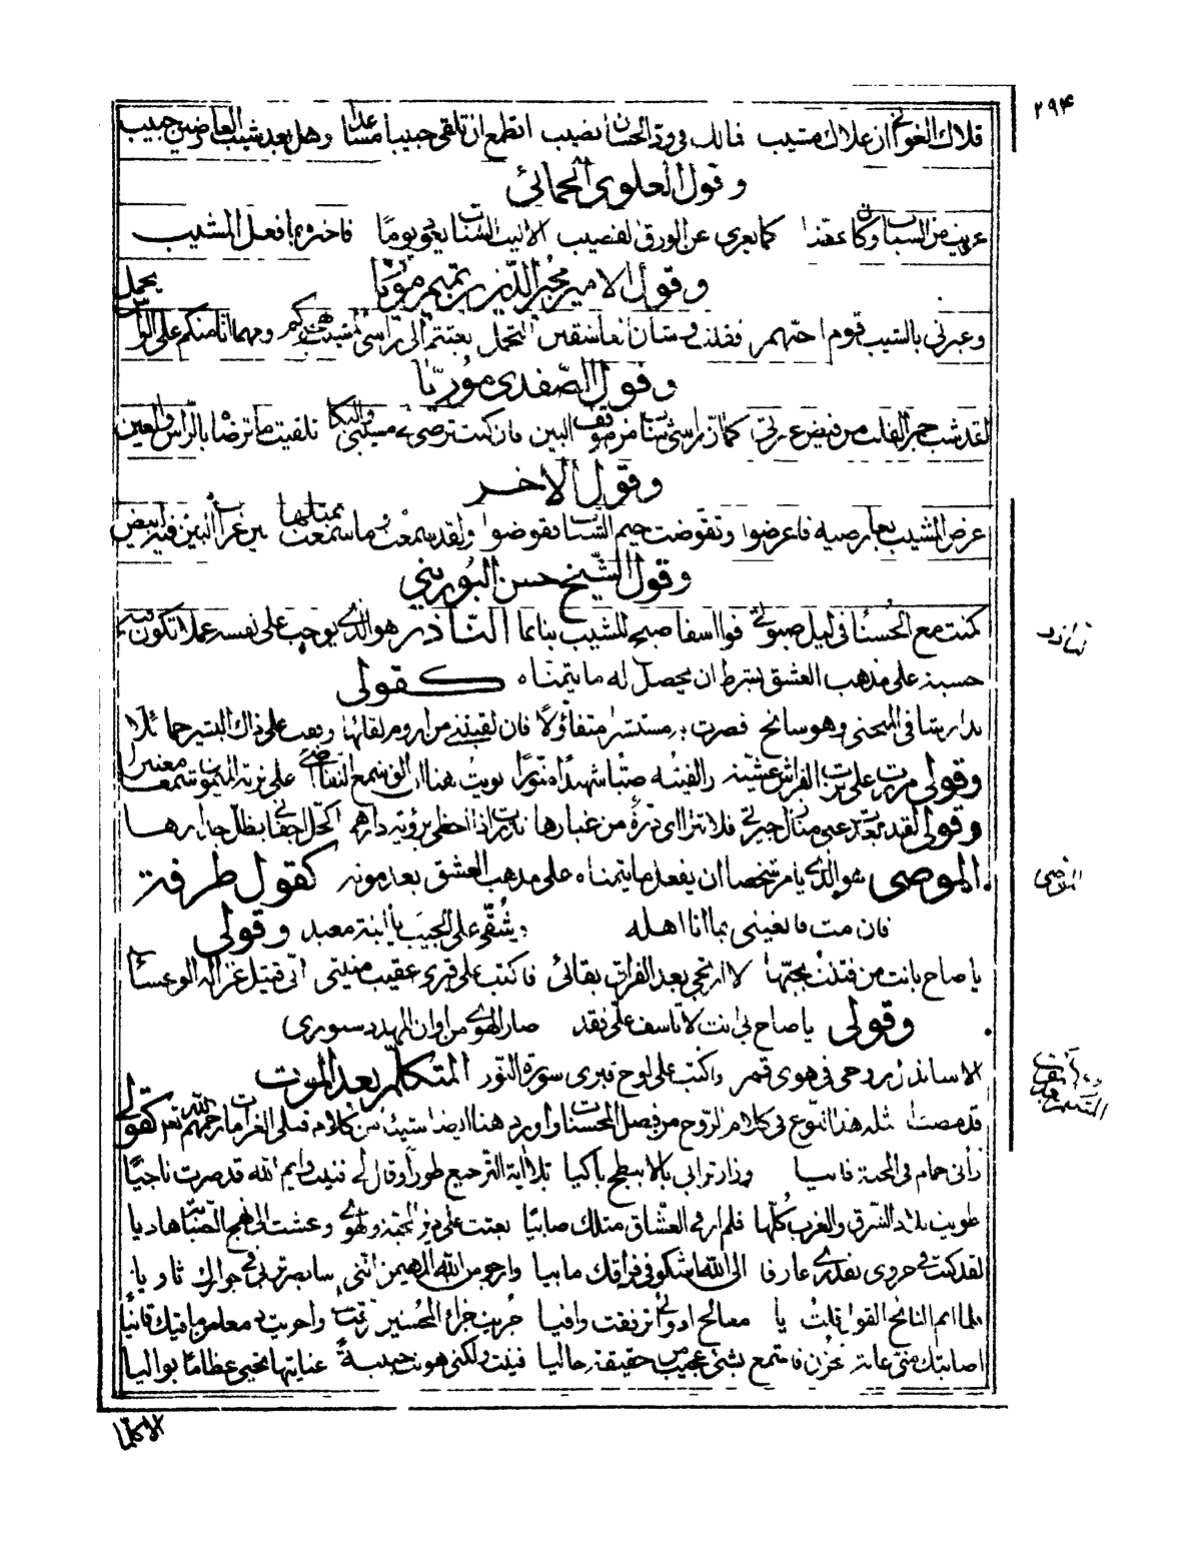 ٢٩۴
قلاك الغواني از علاك مشيب فمالك في ود الحسان نصيب اتطمع ان تلقى حبيبا مساعدا وهل بعد شيب العارضين حبيب
وقول العلوي الحماني
عريت من الشباب وكان غضا كما يعرى عن الورق القضيب الا ليت الشباب يعود يوما فاخبره بما فعل المشيب
وقول الامير مجير الدين بن تميم موريا
وعيرني بالشيب قوم احبهم فقلت وشان العاشقين التجمل بعثتم الى راسي المشيب بهجركم ومهما اتى منكم على الراس يحمل
وقول الصفدي موريا
لقد شب جمر القلب من فيض عبرتي كما ان راسي شاب من موقف البين فان كنت ترضى لي مشيبي والبكا تلقيت ما ترضاه بالراس والعين
وقول الاخر
عرض المشيب بعارضيه فاعرضوا وتقوضت خيم الشباب فقوضوا ولقد سمعت وما سمعت بمثلها بين غراب البين فيه ابيض
وقول الشيخ حسن البوريني
كنت مع الحسناء في ليل صبوتي فوا اسفا صبح المشيب بنا نما الناذر هو الذي يوجب على نفسه عملا تكون
حسبة على مذهب العشق بشرط ان يحصل له ما يتمناه كقولي
بدا ريتا في المنحنى وهو سانح فصرت به مستبشرا متفاؤلا فان لقيتني من اروم لقائها وهبت على ذاك البشير حمائلا
وقولي مررت على ترب الفراش عشية والفيته صبا شهيدا منورا نويت هنا ان الفي شمع التقاضي على تربة الميمون شمعا معنبرا
وقولي لقد بعدت عني منازل جيرتي فلا تترااى ذرة من غبارها نذرت اذا احظى برؤية دارهم اكحل اجفاني بظل جدارها
الموصي هو الذي يامر شخصا ان يفعل ما يتمناه على مذهب العشق بعد موته كقول طرفة
فان مت فانعيني بما انا اهله وشقي على الجيب يا ابنة معبد وقولي
يا صاح بانت من قتلت بحبها لا ارتجي بعد الفراق بقائي فاكتب على قبري عقيب منيتي اني قتيل غزالة الوعساء
وقولي يا صاح بي انت لا تاسف على فقد صار الهوى من اوان المهد دستوري
الاساندز روحي في هوى قمر واكتب على لوح قبري سورة النور المتكلم بعد الموت
قد مضت امثلة هذا النوع في كلام الروح من فصل المحسنات واورد هنا ايضا شيئا من كلام قتلى الغرام رحمهم الله تعالى كقولي
راني حمام في المحبة فانيا وزار ترابي بالابيطح باكيا تلا اية الترجيع طورا وقال لي فنيت وايم الله قد صرت ناجيا
طويت بلاد الشرق والغرب كلها فلم ار في العشاق مثلك صابيا بعثت على دين المحبة والهوى وعشت الى نهج الصبابة هاديا
لقد كنت في حزوى بقدرك عارفا الى الله اشكو في فراقك ما بيا وارجو من الله المهيمن انني سابصر في جوارك ثاويا
فلما اتم النائح القول قلت يا معالج ادوائي ترفقت وافيا جزيت جزاء المحسنين واجريت دمعا من ماقيك قانيا
اصابتك مني عارة تحزن فاستمع بشيء عجيب من حقيقة حاليا فنيت ولكني هويت حبيبة عنايتها تحيي عظاما بواليا
الناذر
الموصي
المتكلم بعد الموت